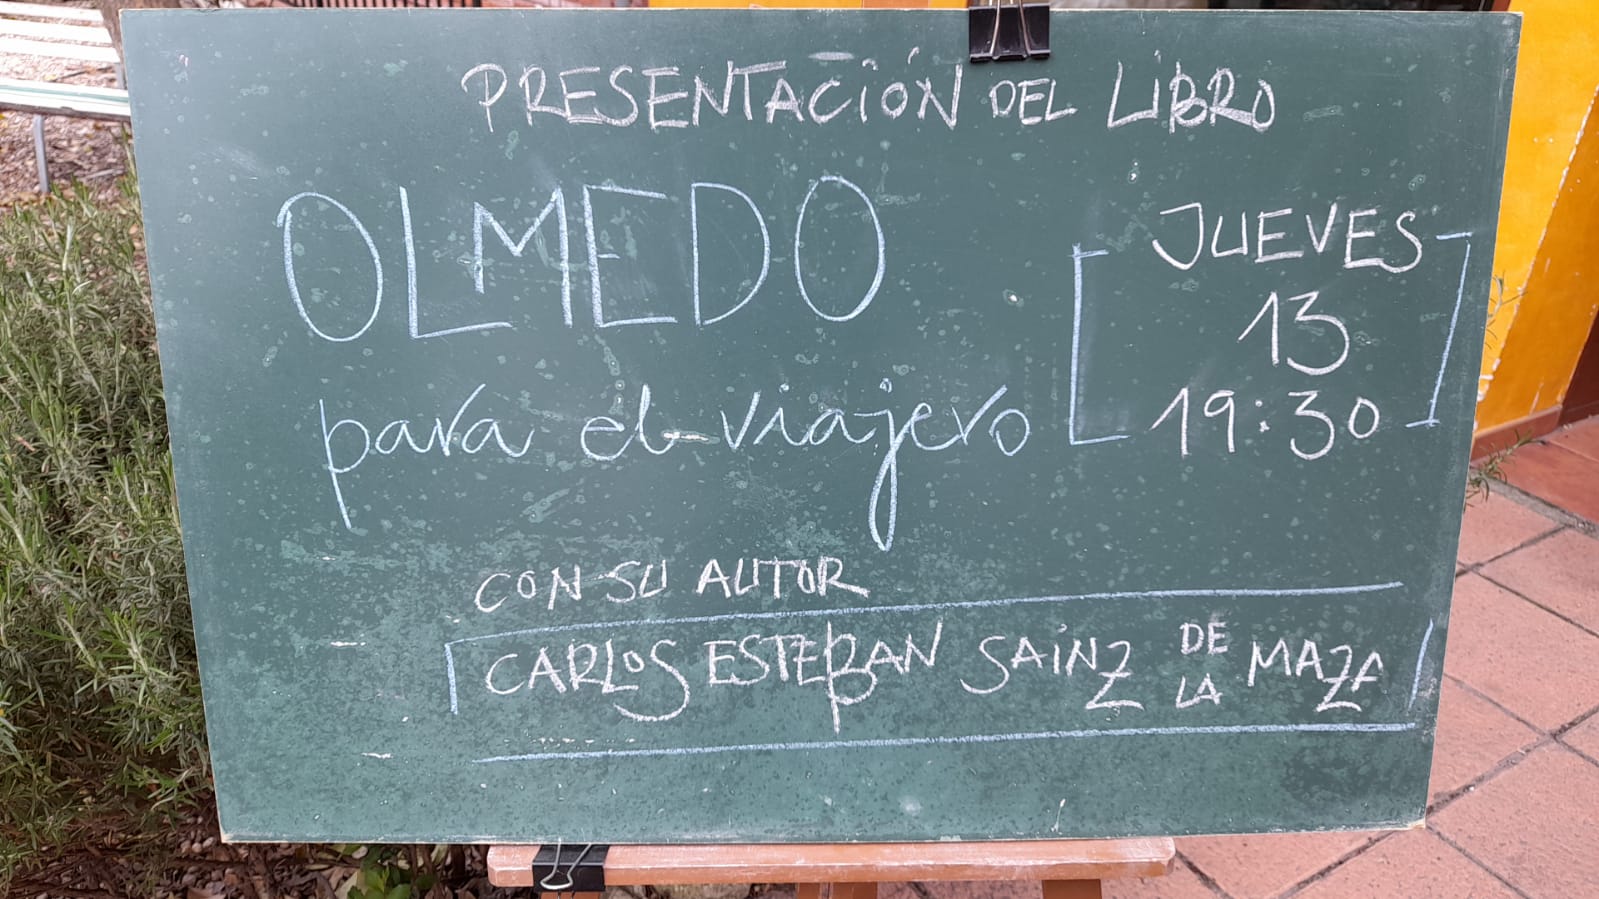 PRESENTACIÓN DEL LIBRO
OLMEDO
para el viajero
JUEVES
13
19:30
CON SU AUTOR
CARLOS ESTEBAN SAINZ DE LA MAZA